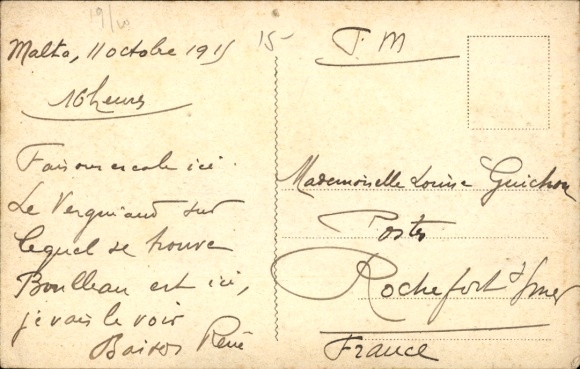 19/10
15-
Malta, 11 octobre 1915
16 heures
Faisons escale ici.
Le Vergniaud sur
lequel se trouve
Boulleau est ici,
je vais le voir
Baisers René
F. M
Mademoiselle Louise Guichou
Postes
Rochefort s/mer
France